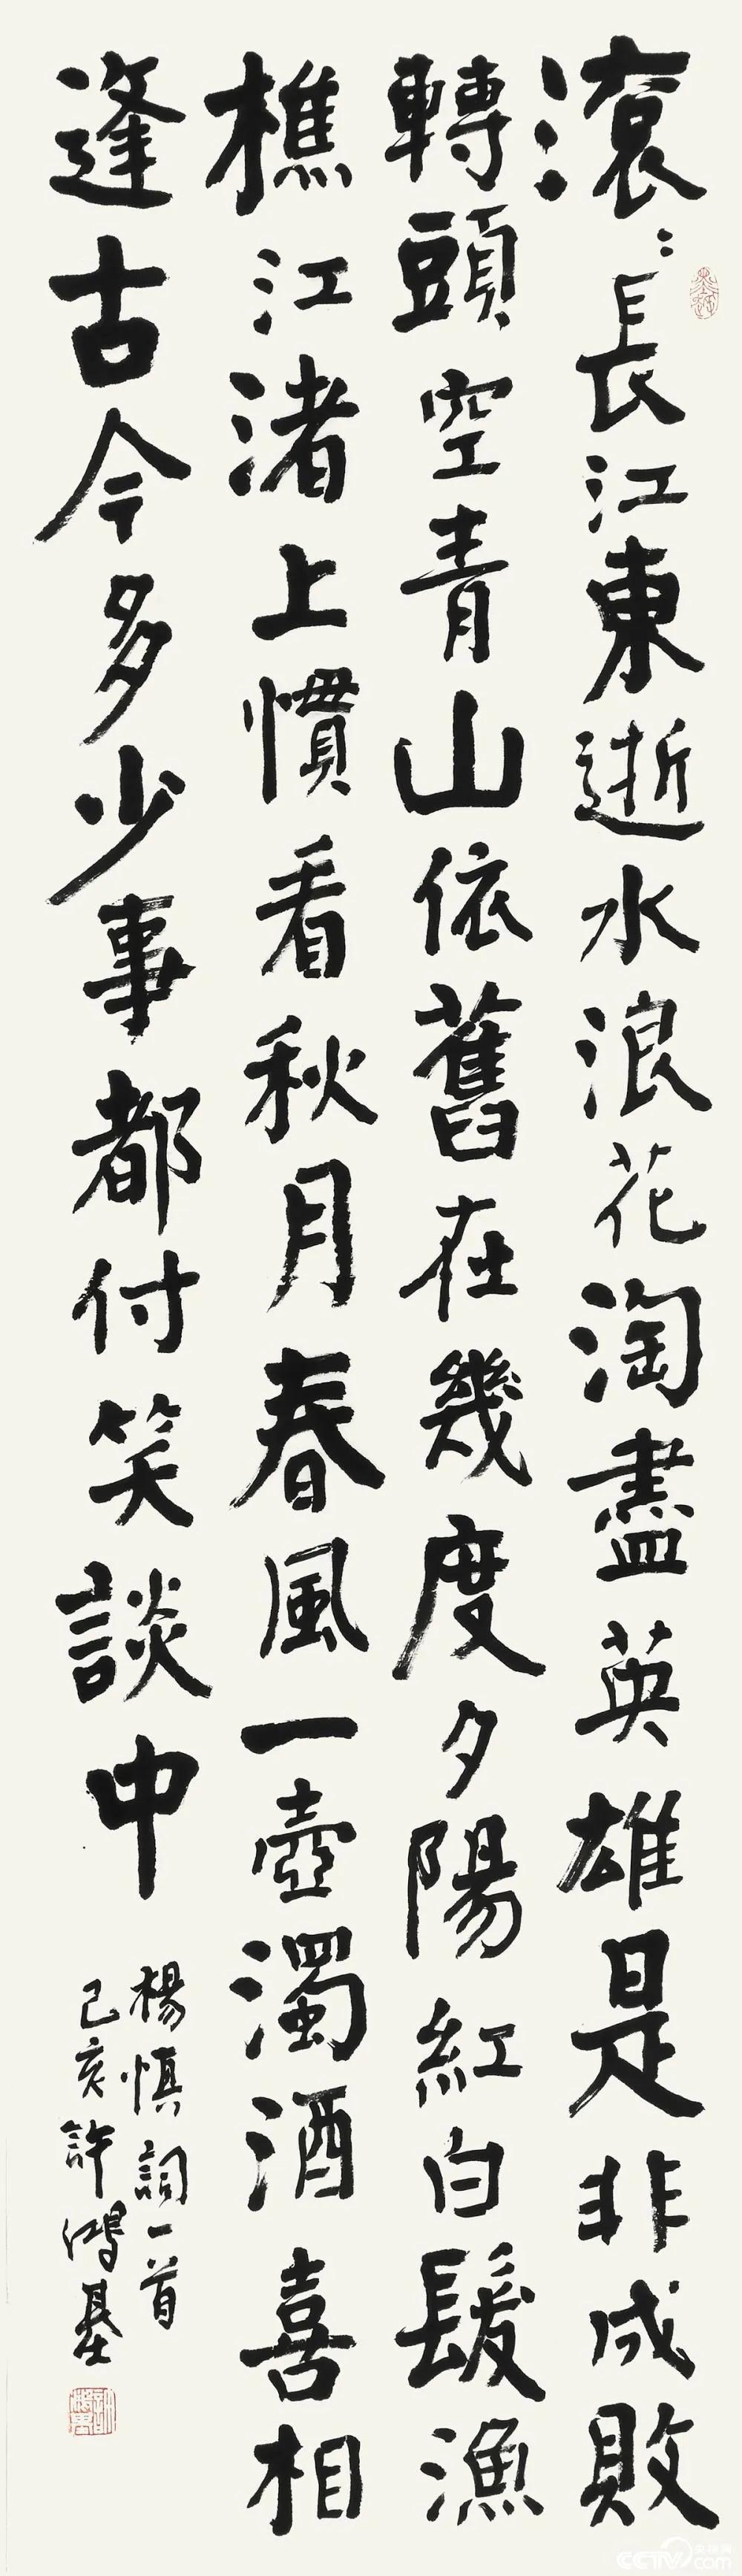 滾〻長江東逝水浪花淘盡英雄是非成敗
轉頭空青山依舊在幾度夕陽紅白髮漁
樵江渚上慣看秋月春風一壺濁酒喜相
逢古今多少事都付笑談中
楊慎詞一首
己亥許鴻基
CCTV.com